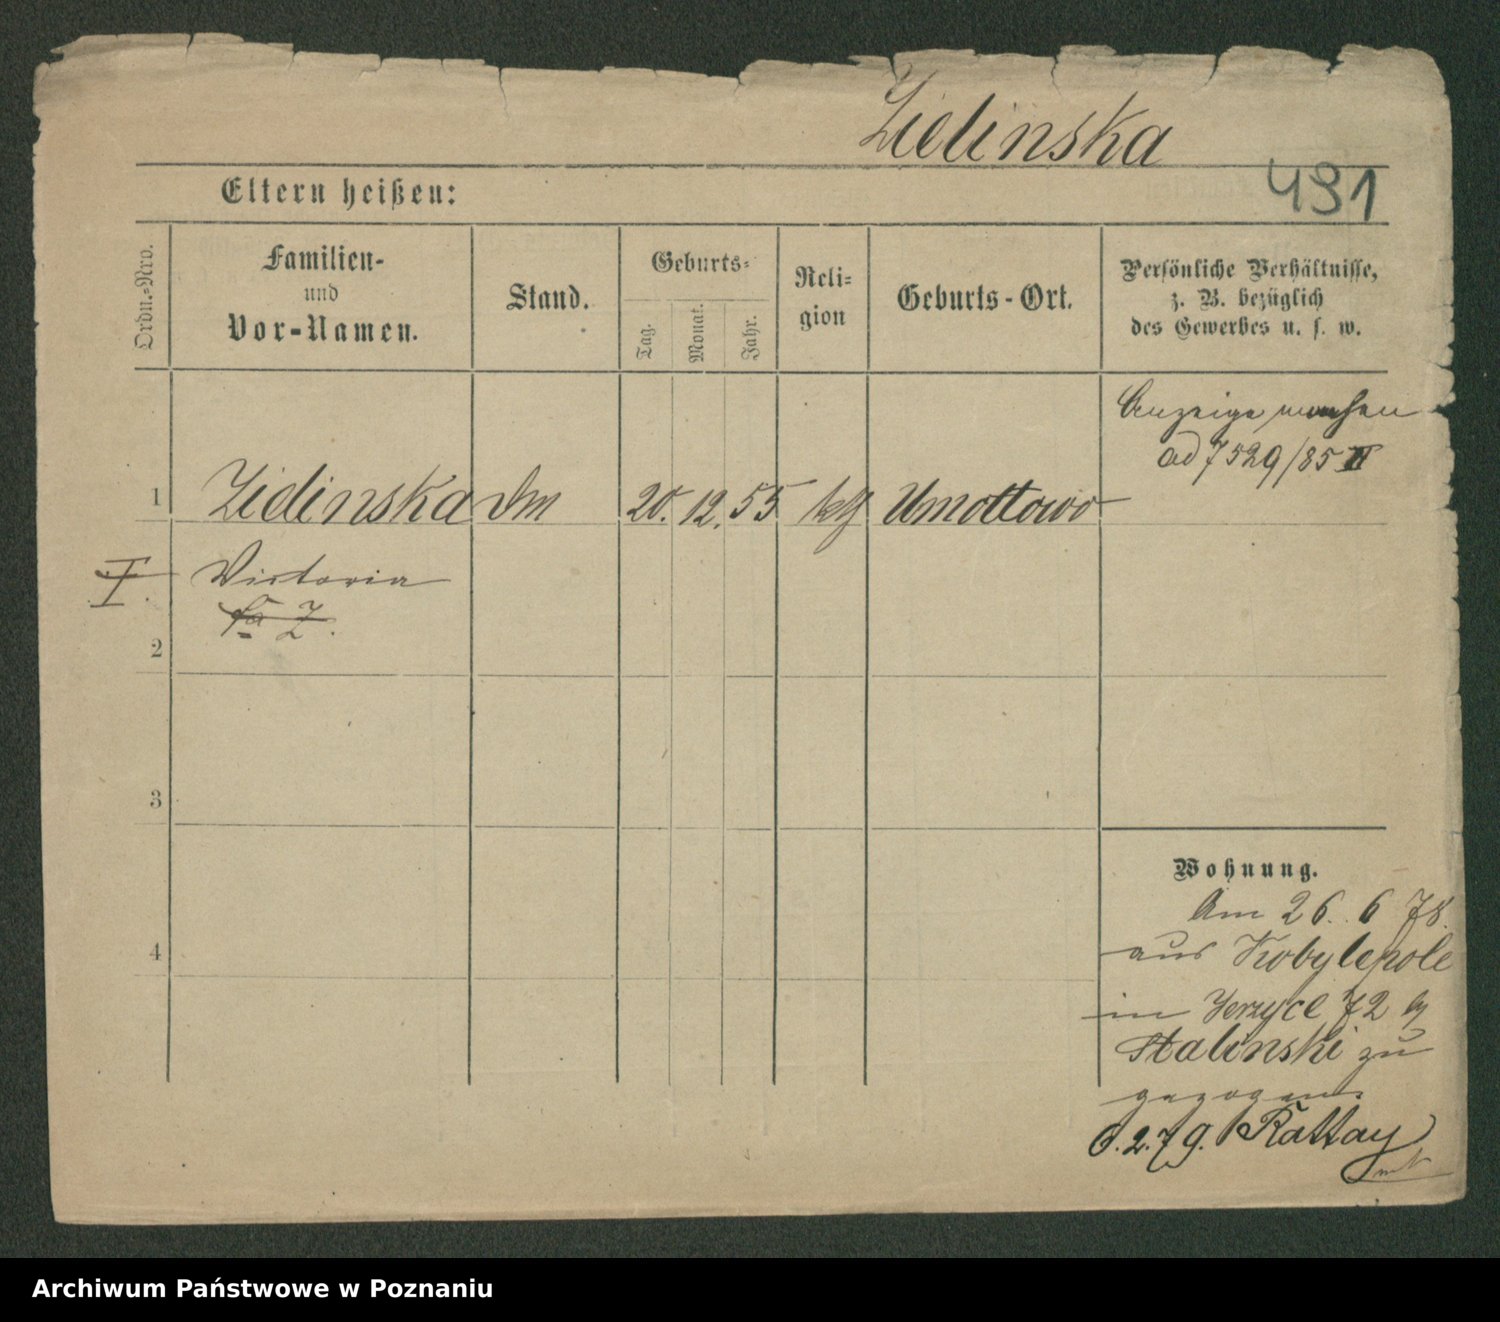 Zielinska
491
Eltern heißen:
Ordn.=Nro.
Familien-
und
Vor-Namen.
Stand.
Geburts-
Tag.
Monat.
Jahr.
Reli-
gion
Geburts-Ort.
Persönliche Verhältnisse,
z. B. bezüglich
des Gewerbes u. s. w.
Anzeige machen
ad 7529/85 II
1 Zielinska 20. 12. 55 kth Umottowo
I. Victoria
2
3
4
Wohnung.
Am 26. 6 78.
aus Kobylepole
in Jerzyce 72 by
Stalinski zu
gezogen.
6.2.79. Rattay
Archiwum Państwowe w Poznaniu